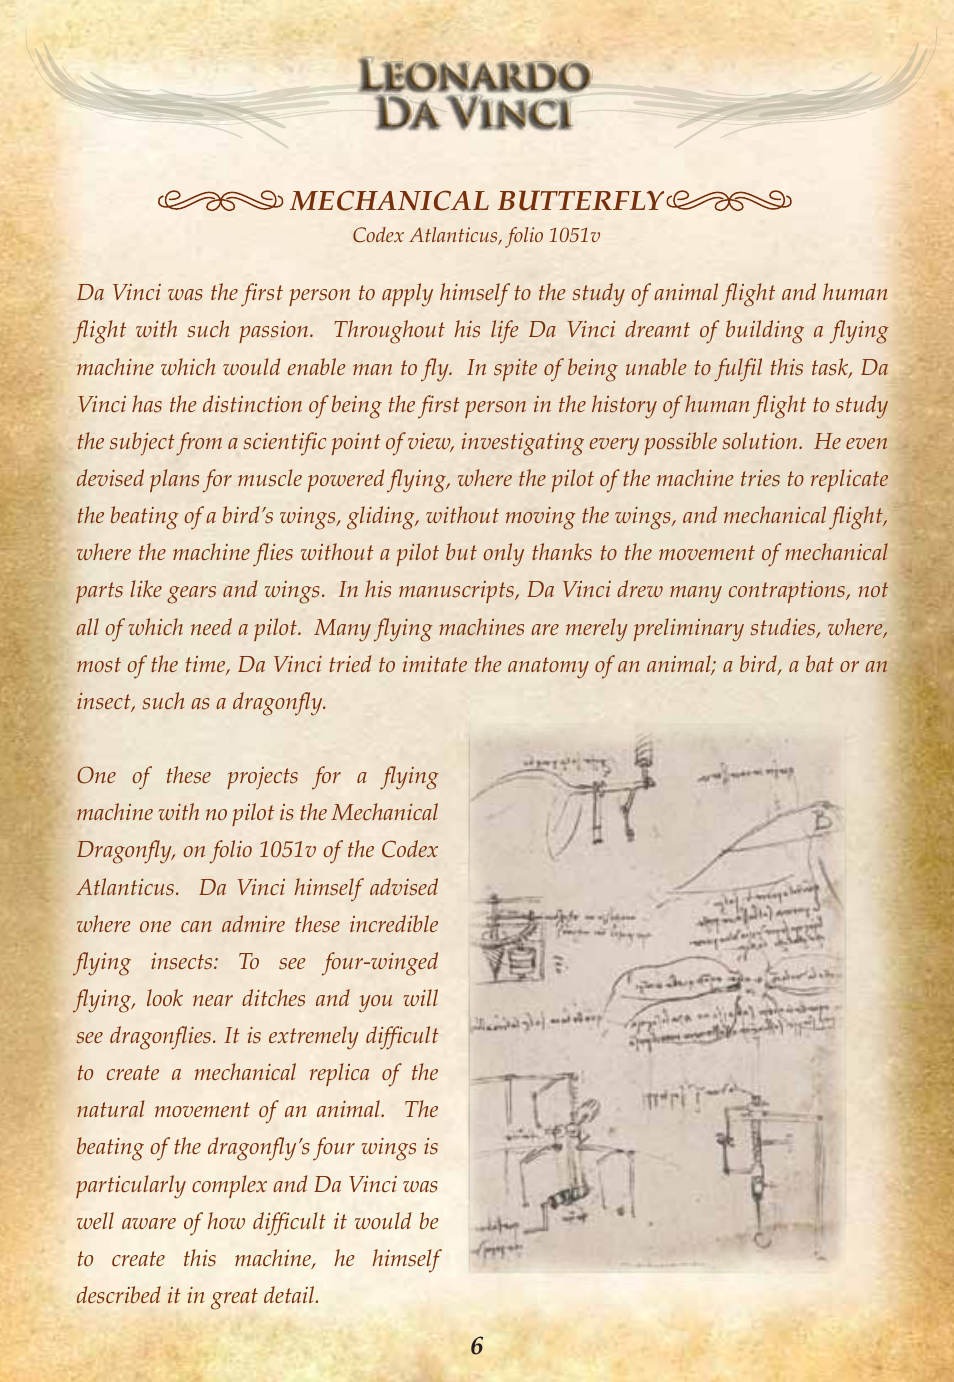 LEONARDO
DA VINCI
MECHANICAL BUTTERFLY
Codex Atlanticus, folio 1051v
Da Vinci was the first person to apply himself to the study of animal flight and human
flight with such passion. Throughout his life Da Vinci dreamt of building a flying
machine which would enable man to fly. In spite of being unable to fulfil this task, Da
Vinci has the distinction of being the first person in the history of human flight to study
the subject from a scientific point of view, investigating every possible solution. He even
devised plans for muscle powered flying, where the pilot of the machine tries to replicate
the beating of a bird's wings, gliding, without moving the wings, and mechanical flight,
where the machine flies without a pilot but only thanks to the movement of mechanical
parts like gears and wings. In his manuscripts, Da Vinci drew many contraptions, not
all of which need a pilot. Many flying machines are merely preliminary studies, where,
most of the time, Da Vinci tried to imitate the anatomy of an animal; a bird, a bat or an
insect, such as a dragonfly.
One of these projects for a flying
machine with no pilot is the Mechanical
Dragonfly, on folio 1051v of the Codex
Atlanticus. Da Vinci himself advised
where one can admire these incredible
flying insects: To see four-winged
flying, look near ditches and you will
see dragonflies. It is extremely difficult
to create a mechanical replica of the
natural movement of an animal. The
beating of the dragonfly's four wings is
particularly complex and Da Vinci was
well aware of how difficult it would be
to create this machine, he himself
described it in great detail.
B
6